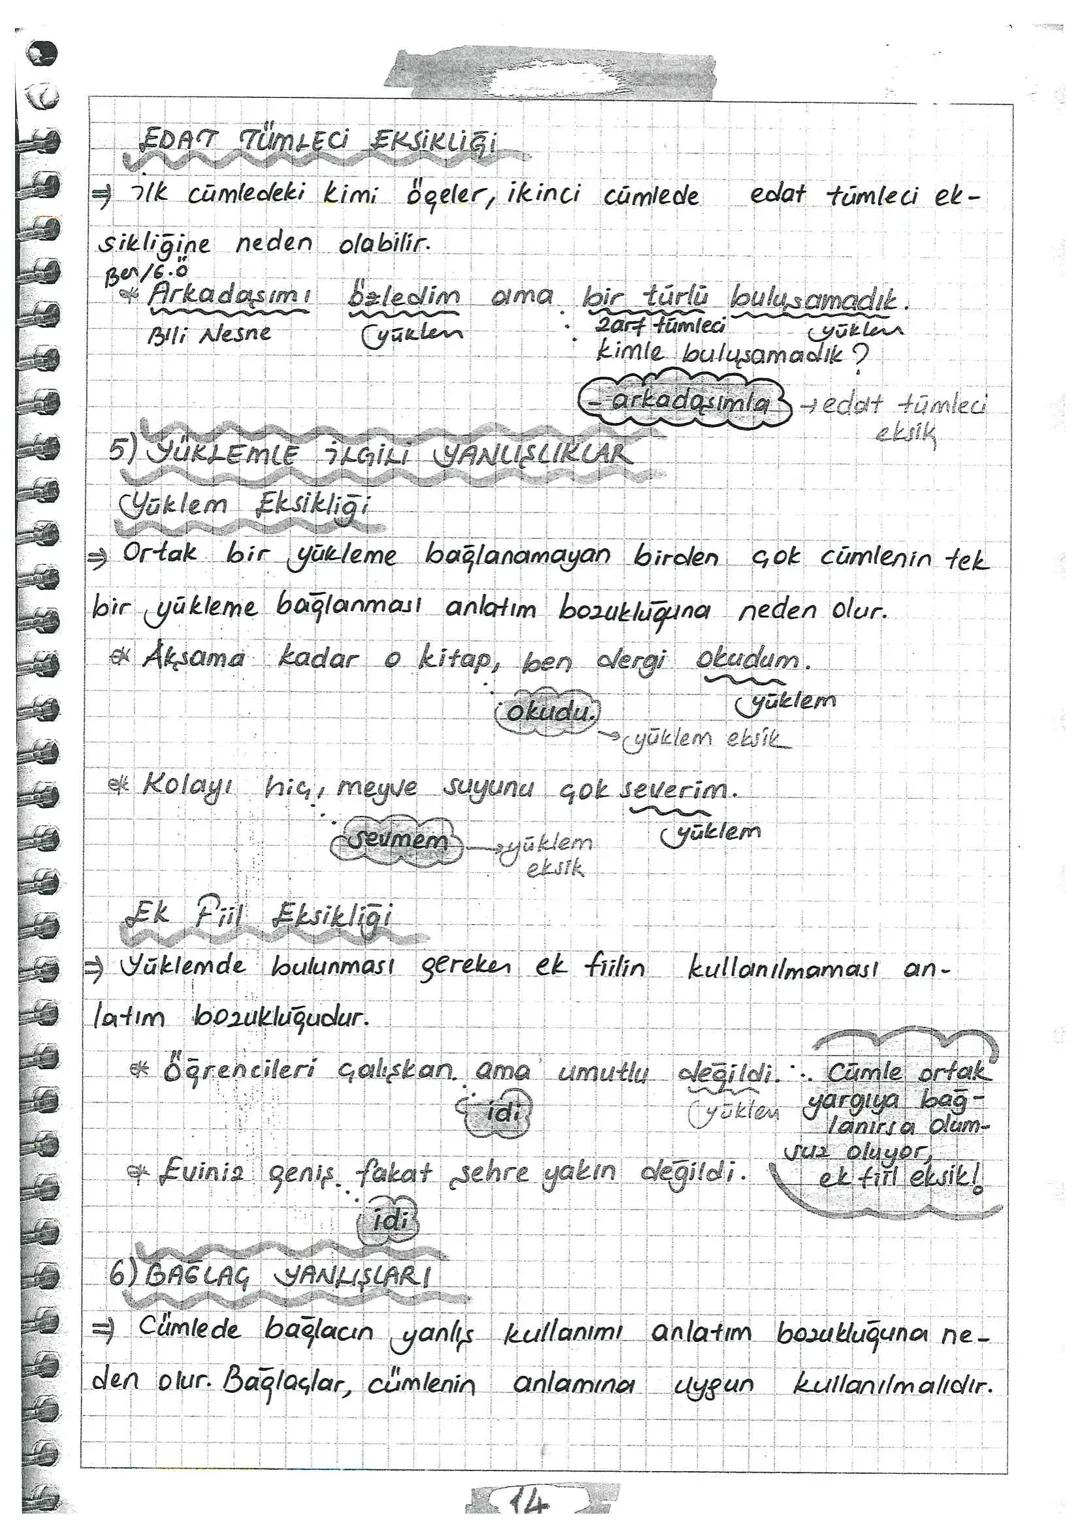 EDAT TÜMLECİ EKSİKLİĞİ
⇒ İlk cümledeki kimi öğeler, ikinci cümlede edat tümleci ek-
sikliğine neden olabilir.
Ben/G.Ö
* Arkadaşımı özledim ama bir türlü buluşamadık.
Bli Nesne yüklem zarf tümleci yüklem
kimle buluşamadık?
- arkadaşımla → edat tümleci
eksik
5) YÜKLEMLE İLGİLİ YANLIŞLIKLAR
Yüklem Eksikliği
⇒ Ortak bir yükleme bağlanamayan birden çok cümlenin tek
bir yükleme bağlanması anlatım bozukluğuna neden olur.
* Akşama kadar o kitap, ben dergi okudum.
okudu. yüklem
→ yüklem eksik
* Kolayı hiç, meyve suyunu çok severim.
sevmem → yüklem yüklem
eksik
Ek Fiil Eksikliği
⇒ Yüklemde bulunması gereken ek fiilin kullanılmaması an-
latım bozukluğudur.
* Öğrencileri çalışkan ama umutlu değildi. ∴ Cümle ortak
idi yüklem yargıya bağ-
lanırsa olum-
suz oluyor,
* Eviniz geniş fakat şehre yakın değildi. ek fiil eksik!
idi
6) BAĞLAÇ YANLIŞLARI
⇒ Cümlede bağlacın yanlış kullanımı anlatım bozukluğuna ne-
den olur. Bağlaçlar, cümlenin anlamına uygun kullanılmalıdır.
14